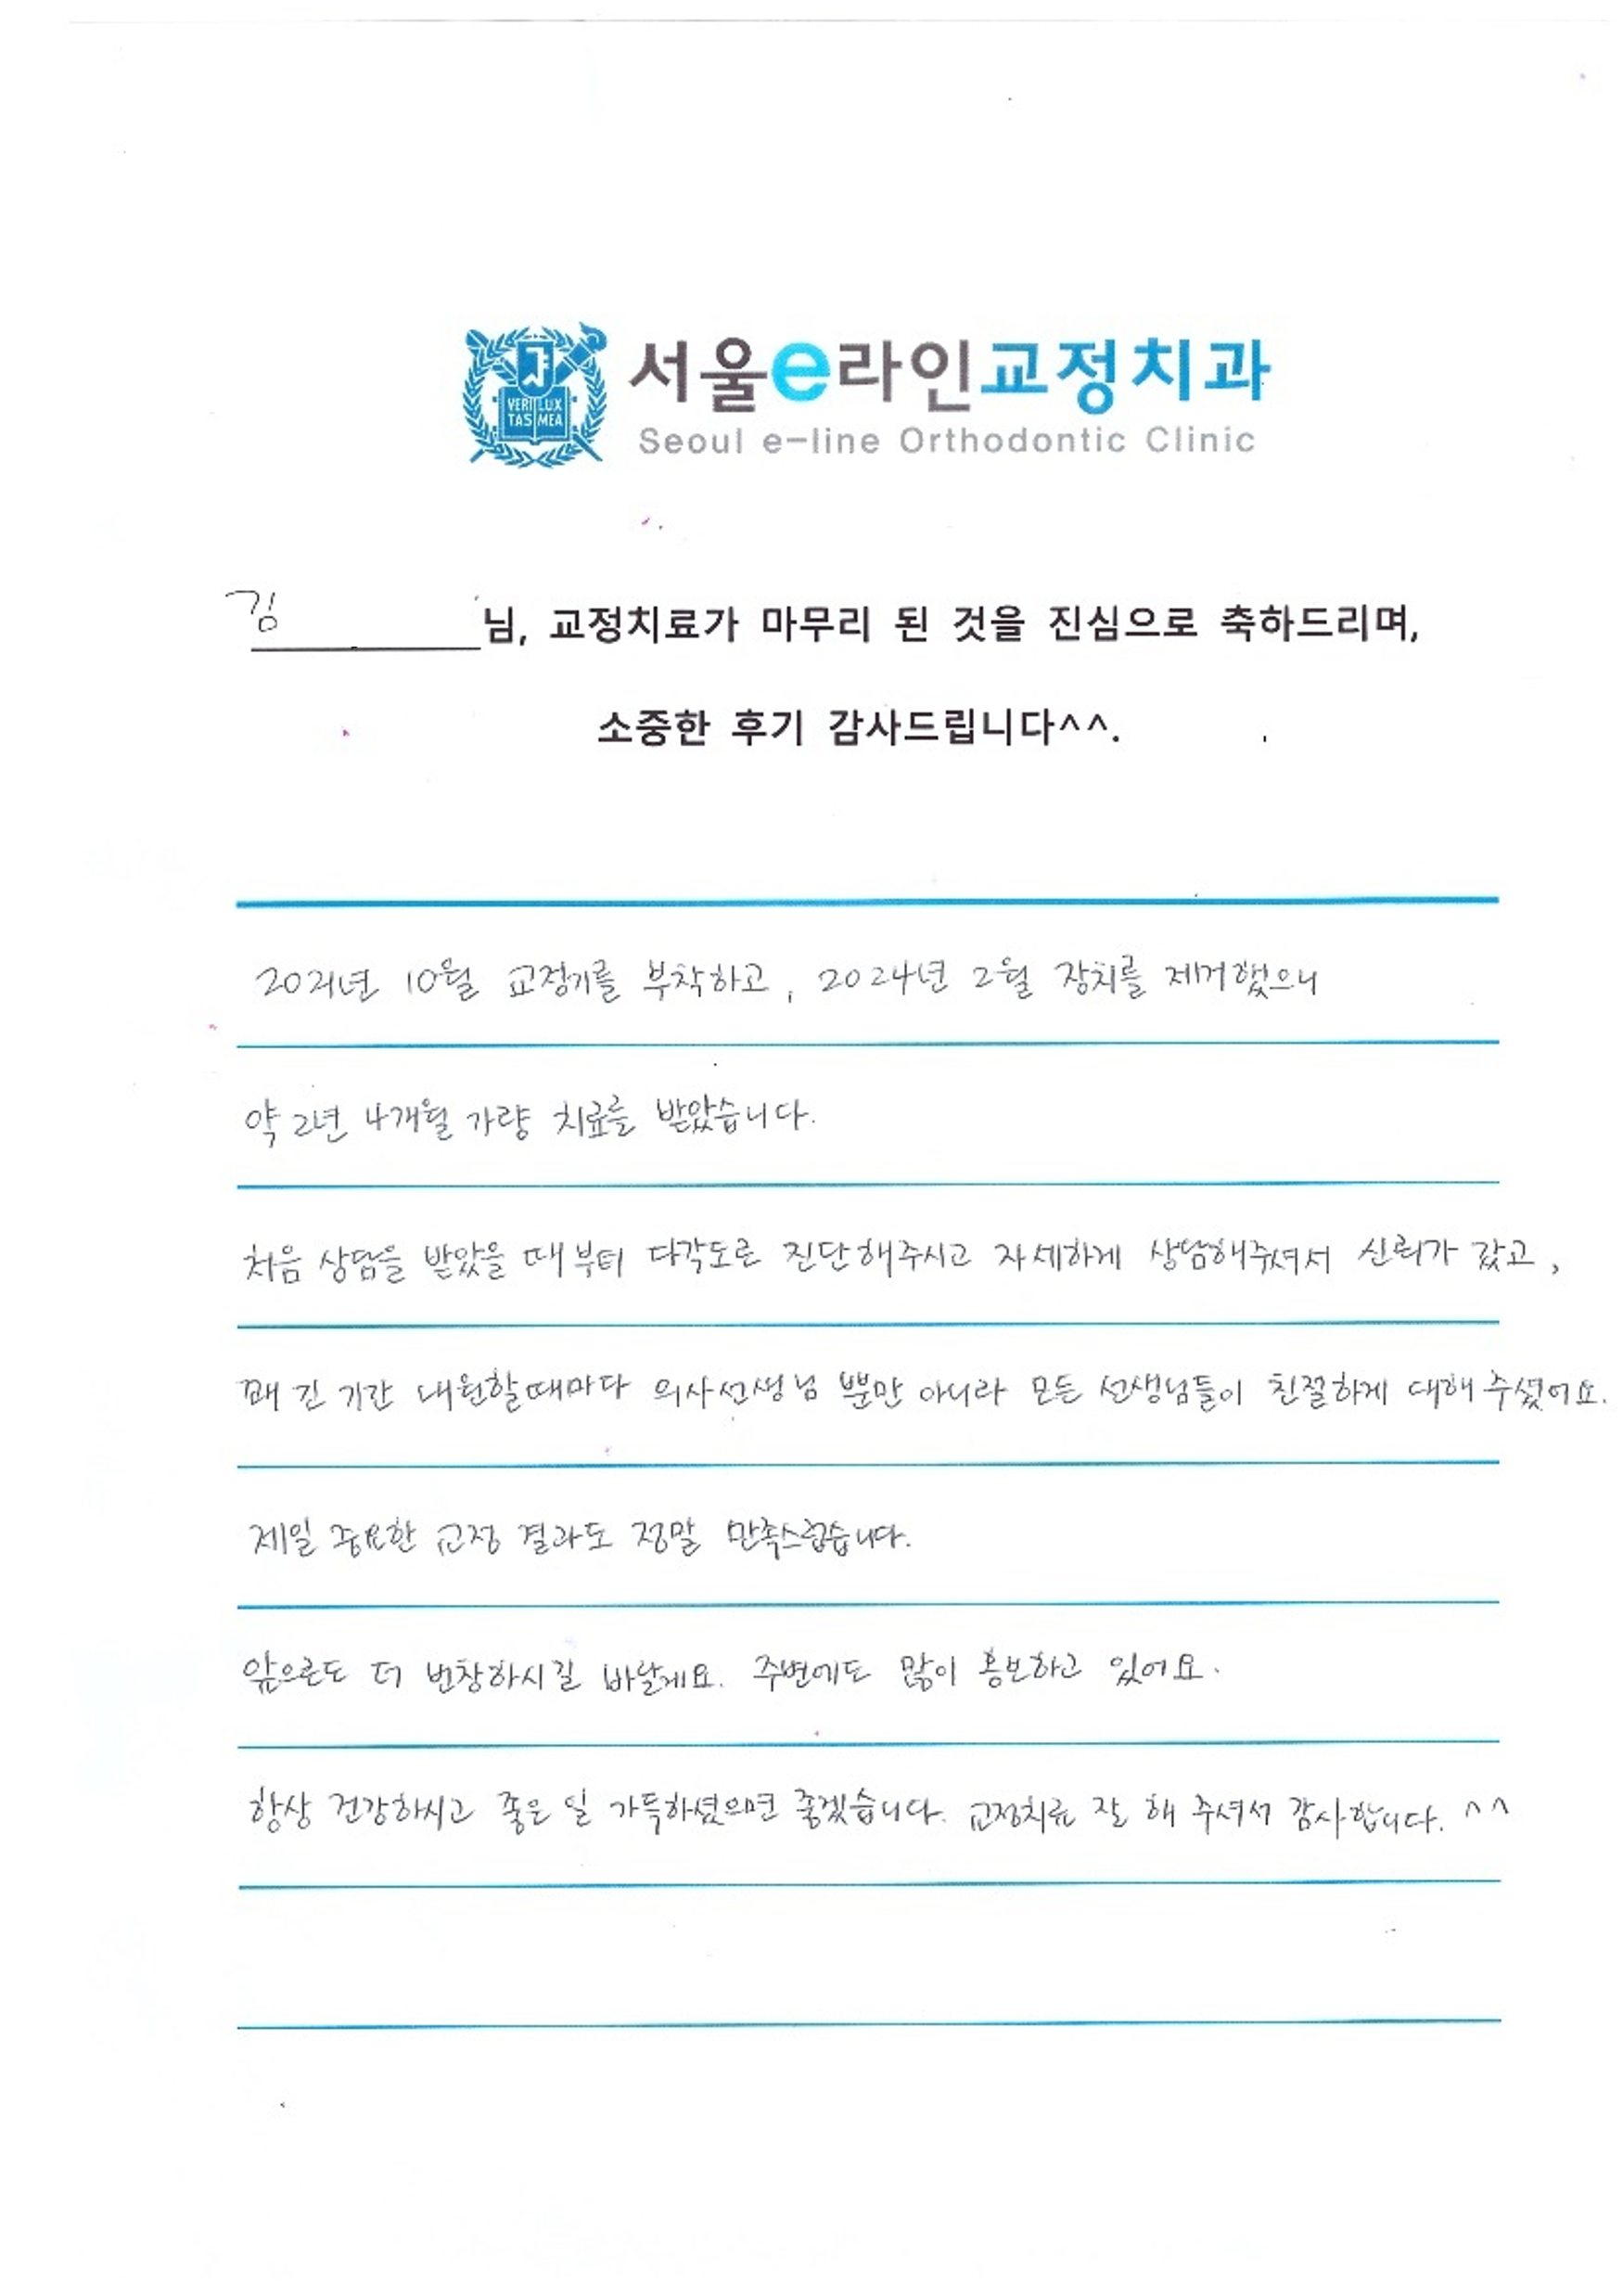 VERI LUX
TAS MEA
서울e라인교정치과
Seoul e-line Orthodontic Clinic
김 님, 교정치료가 마무리 된 것을 진심으로 축하드리며,
소중한 후기 감사드립니다^^.
2021년 10월 교정기를 부착하고, 2024년 2월 장치를 제거했으니
약 2년 4개월 가량 치료를 받았습니다.
처음 상담을 받았을 때부터 다각도로 진단해주시고 자세하게 상담해주셔서 신뢰가 갔고,
꽤 긴 기간 내원할때마다 의사선생님 뿐만 아니라 모든 선생님들이 친절하게 대해 주셨어요.
제일 중요한 교정 결과도 정말 만족스럽습니다.
앞으로도 더 번창하시길 바랄게요. 주변에도 많이 홍보하고 있어요.
항상 건강하시고 좋은 일 가득하셨으면 좋겠습니다. 교정치료 잘 해 주셔서 감사합니다. ^^